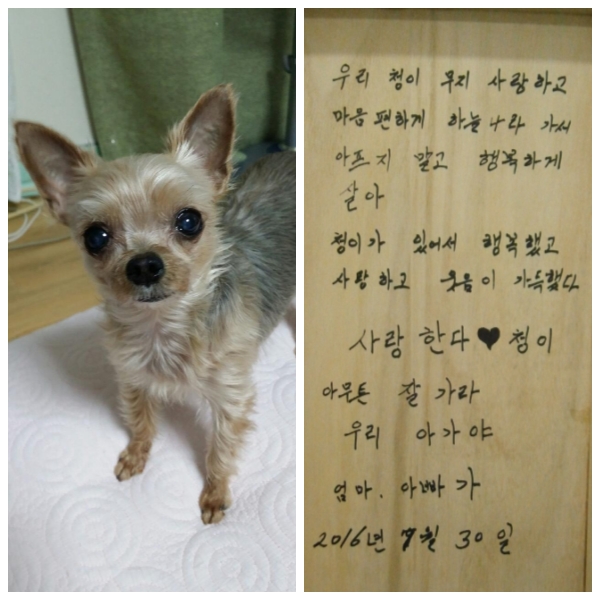 우리 청이 무지 사랑하고
마음 편하게 하늘나라 가서
아프지 말고 행복하게
살아
청이가 있어서 행복했고
사랑하고 웃음이 가득했다
사랑한다♥청이
아무튼 잘가라
우리 아가야
엄마. 아빠가
2016년 7월 30일